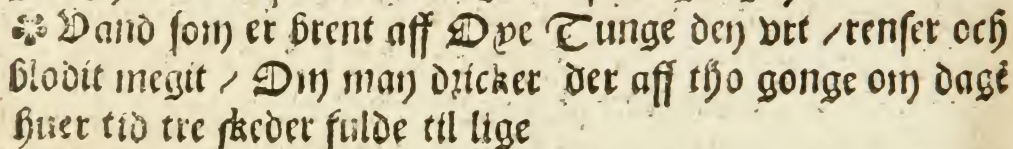 Vand som er brent aff Oxe Tunge den vrt / renser och
blodit megit / Om man dricker der aff tho gonge om dagẽ
huer tid tre skeder fulde til lige